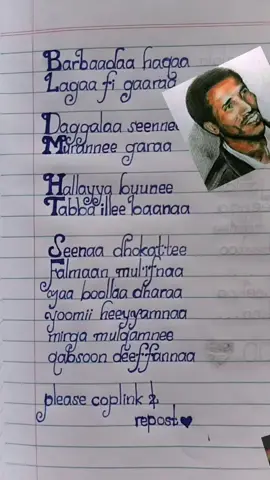 Barbaadaa haqaa
Lagaa fi gaaraa
Daggalaa seennee
Murannee garaa
Hallayya buunee
Tabba illee baanaa
Seenaa dhokattee
Falmaan mul'ifnaa
yaa boollaa dharaa
yoomii heeyyamnaa
mirga mulqamnee
qabsoon deeffannaa
please coplink &
repost